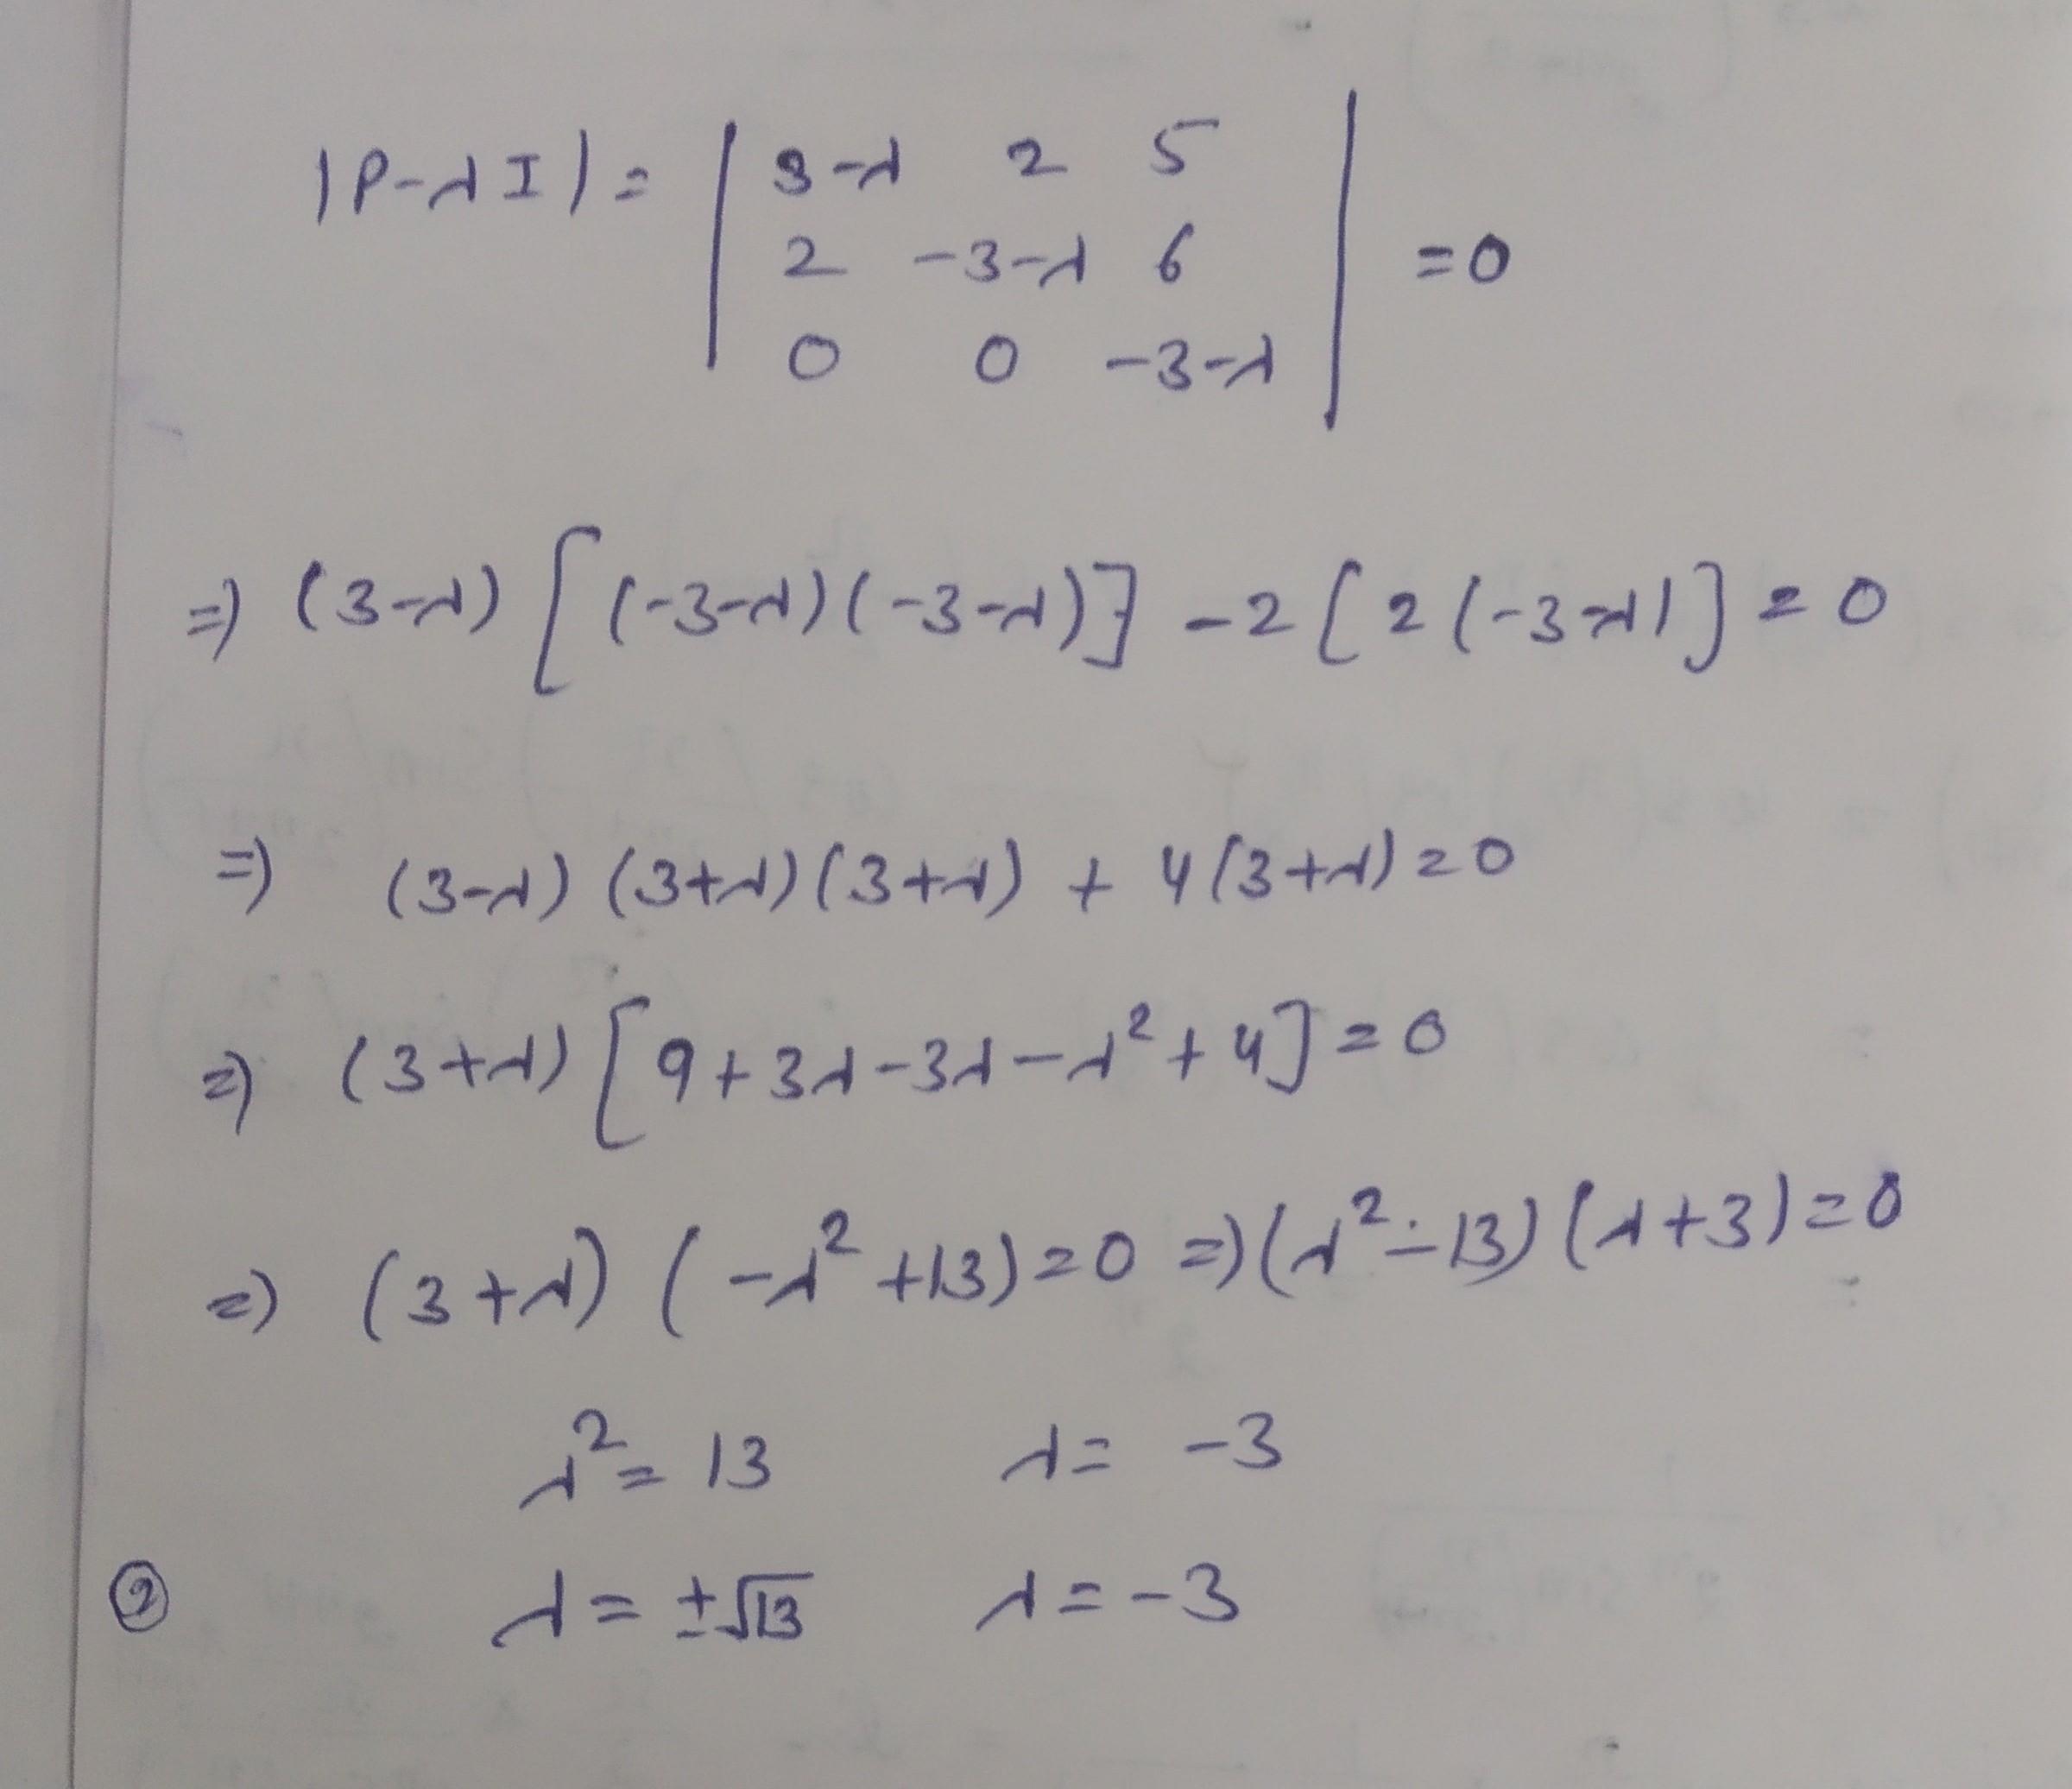 |P-λI| = | 3-λ 2 5 |
| 2 -3-λ 6 | = 0
| 0 0 -3-λ |
⇒ (3-λ) [(-3-λ)(-3-λ)] -2 [2(-3-λ)] = 0
⇒ (3-λ) (3+λ) (3+λ) + 4(3+λ) = 0
⇒ (3+λ) [9+3λ-3λ-λ²+4] = 0
⇒ (3+λ) (-λ²+13) = 0 ⇒ (λ²-13) (λ+3) = 0
λ² = 13 λ = -3
② λ = ±√13 λ = -3